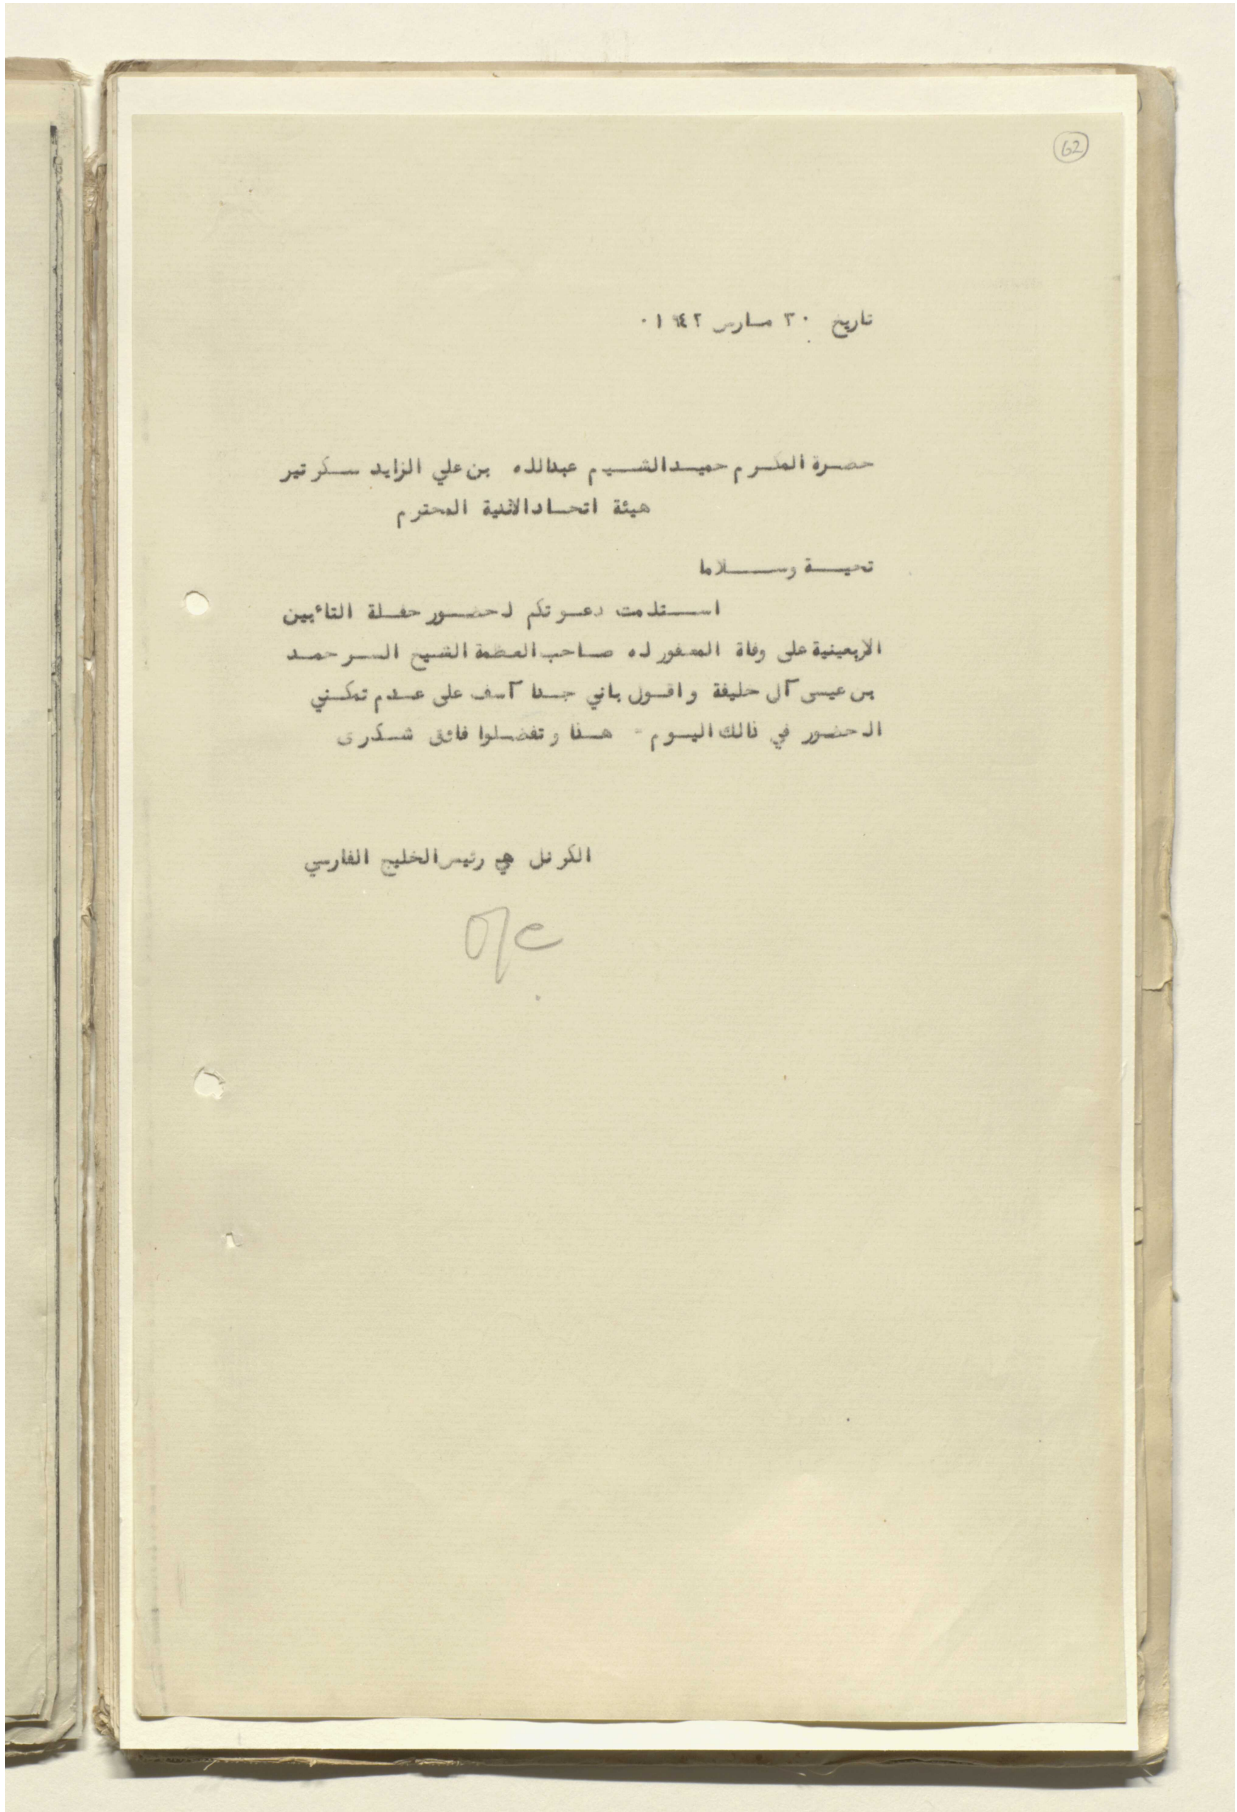 62
تاريخ ٣٠ مارس ١٩٤٢٠
حضرة المكرم حميد الشيم عبدالله بن علي الزايد سكرتير
هيئة اتحاد الاندية المحترم
تحية وسلاما
استلمت دعوتكم لحضور حفلة التائبين
الاربعينية على وفاة المغفور له صاحب العظمة الشيخ السر حمد
بن عيسى آل خليفة واقول باني جدا آسف على عدم تمكني
الحضور في ذالك اليوم - هذا وتفضلوا فائق شكرى
الكرنل هي رئيس الخليج الفارسي